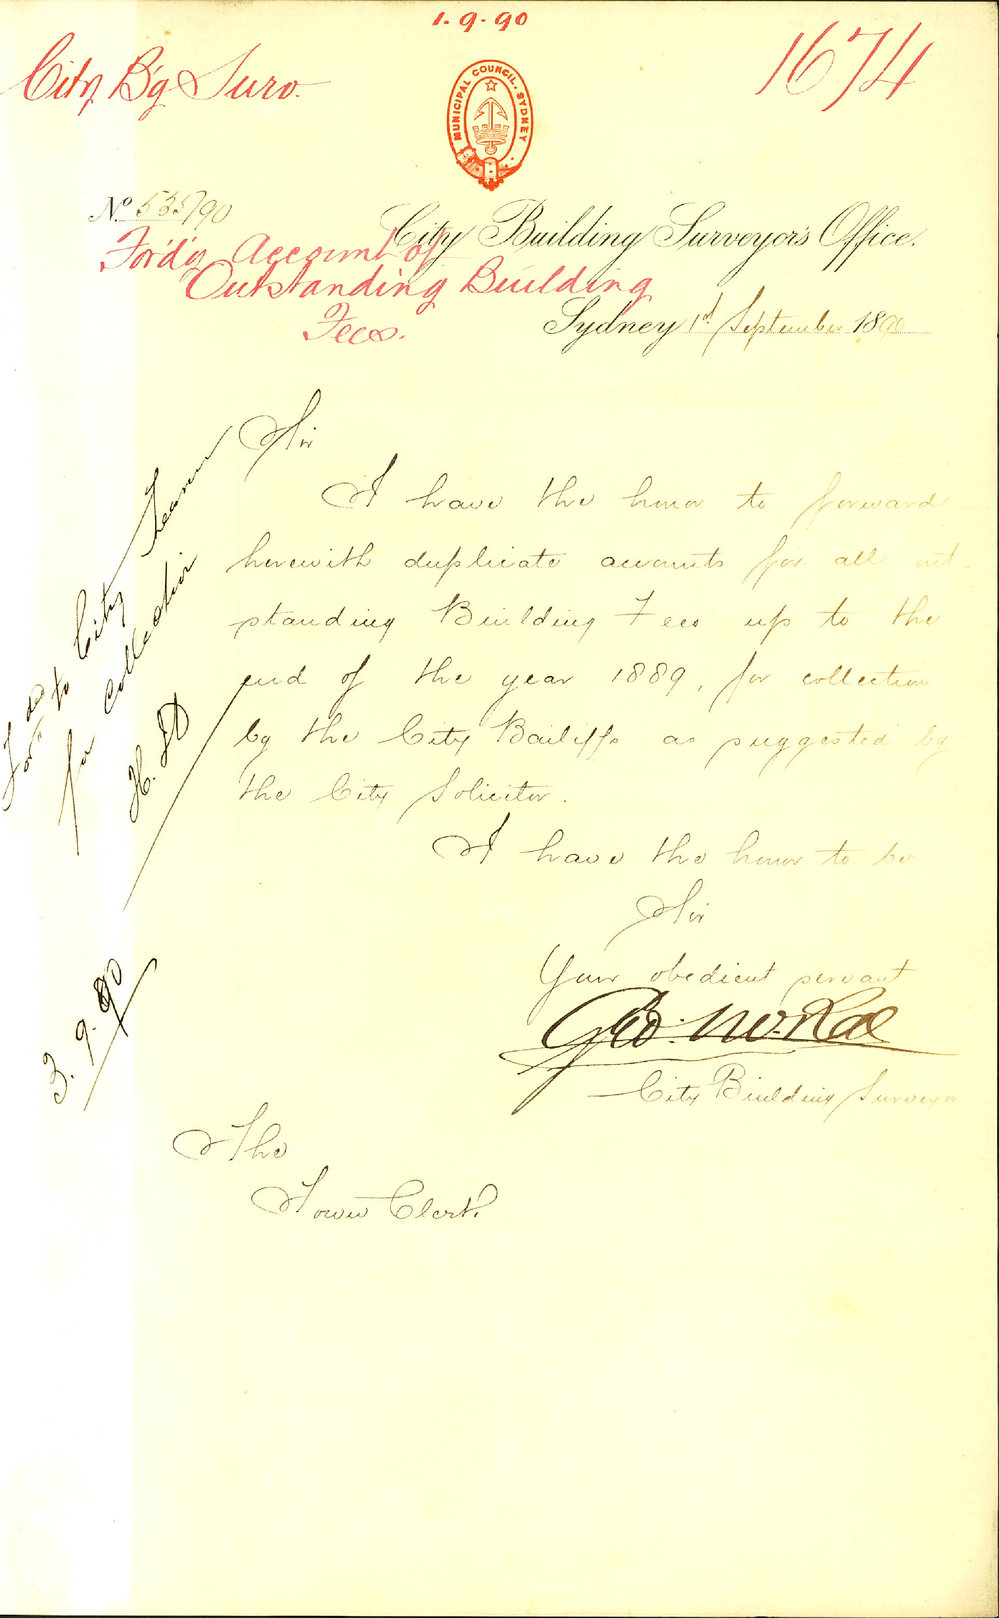 1.9.90
City B'g Surv.
1674
MUNICIPAL COUNCIL. SYDNEY
No 535/90
City Building Surveyor's Office.
Ford'g Account of
Outstanding Building
Fees.
Sydney 1st September 1890
Sir
I have the honor to forward
herewith duplicate accounts for all out-
standing Building Fees up to the
end of the year 1889, for collection
by the City Bailiffs as suggested by
the City Solicitor.
I have the honor to be
Sir
Your obedient servant
Geo. McRae
City Building Surveyor
The
Town Clerk
to City
for collection
3.9.90